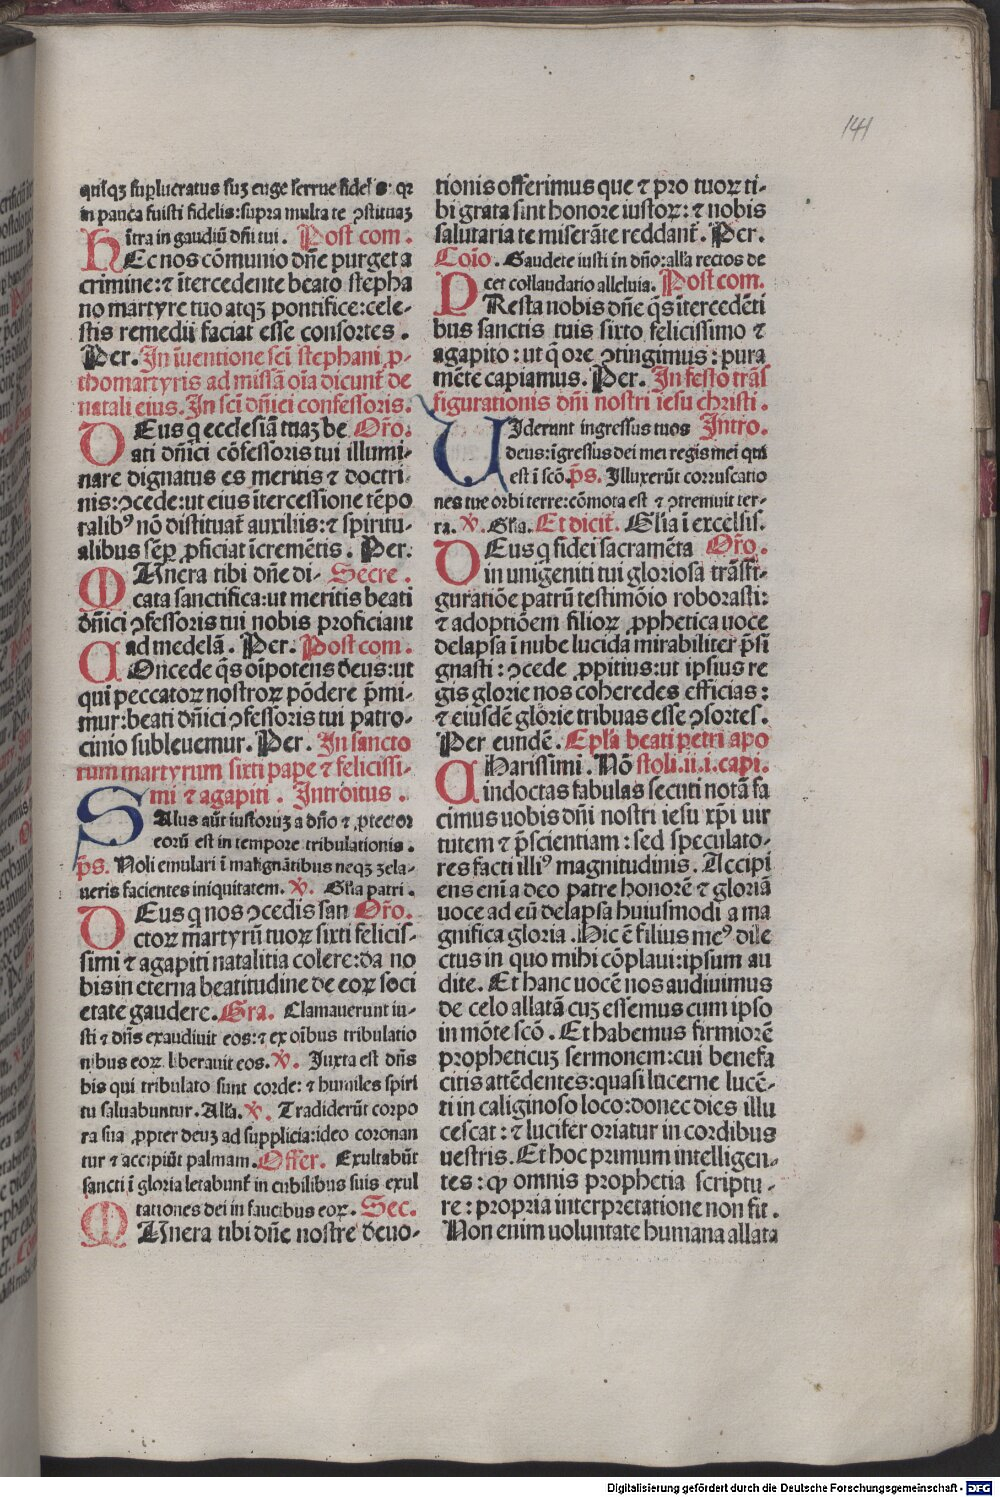 141
qtisqʒ suꝑlucratus suʒ euge serue fidelis: qr
in pauca fuisti fidelis: supra multa te ꝯstituaʒ
ītra in gaudiū dn̄i tui. Post com.
HEc nos cōmunio dn̄e purget a
crimine: ⁊ ītercedente beato stepha
no martyre tuo atqʒ pontifice: cele-
stis remedii faciat esse consortes.
Per. In īuentione sc̄i stephani ꝓ-
thomartyris ad missā oīa dicunt̄ de
natali eius. In sc̄i dn̄ici confessoris.
DEus q ecclesiā tuaʒ be Or̄o.
ati dn̄ici cōfessoris tui illumi-
nare dignatus es meritis ⁊ doctri-
nis: ꝯcede: ut eius ītercessione tēpo
ralibꝰ nō distituat̄ auxiliis: ⁊ spiritu-
alibus sēꝑ ꝓficiat īcremētis. Per.
MUnera tibi dn̄e di- Secre.
cata sanctifica: ut meritis beati
dn̄ici ꝯfessoris tui nobis proficiant
ad medelā. Per. Post com.
COncede q̄s oīpotens deus: ut
qui peccatoꝝ nostroꝝ pōdere p̄mi-
mur: beati dn̄ici ꝯfessoris tui patro-
cinio subleuemur. Per. In sancto
rum martyrum sixti pape ⁊ felicissi-
mi ⁊ agapiti. Introitus.
SAlus aūt iustoruʒ a dn̄o ⁊ ꝓtector
eorū est in tempore tribulationis.
p̄s. Noli emulari ī malignātibus neqʒ ʒela-
ueris facientes iniquitatem. ℣. Gl̄ia patri.
DEus q nos ꝯcedis san Or̄o.
ctoꝝ martyrū tuoꝝ sixti felicis-
simi ⁊ agapiti natalitia colere: da no
bis in eterna beatitudine de eoꝝ soci
etate gaudere. Gra. Clamauerunt iu-
sti ⁊ dn̄s exaudiuit eos: ⁊ ex oībus tribulatio
nibus eoꝝ liberauit eos. ℣. Juxta est dn̄s
his qui tribulato sunt corde: ⁊ humiles spiri
tu saluabuntur. Alla. ℣. Tradiderūt corpo
ra sua ꝓpter deuʒ ad supplicia: ideo coronan
tur ⁊ accipiūt palmam. Offer. Exultabūt
sancti ī gloria letabunt̄ in cubilibus suis exul
tationes dei in faucibus eoꝝ. Sec.
MUnera tibi dn̄e nostre deuo-
tionis offerimus que ⁊ pro tuoꝝ ti-
bi grata sint honore iustoꝝ: ⁊ nobis
salutaria te miserāte reddant̄. Per.
Coīo. Gaudete iusti in dn̄o: alla rectos de
cet collaudatio alleluia. Post com.
PResta nobis dn̄e q̄s ītercedēti
bus sanctis tuis sixto felicissimo ⁊
agapito: ut q̄ ore ꝯtingimus: pura
mēte capiamus. Per. In festo trās
figurationis dn̄i nostri iesu christi.
UIderunt ingressus tuos Intro.
deus: īgressus dei mei regis mei qui
est ī scō. p̄s. Illuxerūt corruscatio
nes tue orbi terre: cōmota est ⁊ ꝯtremuit ter-
ra. ℣. Gl̄ia. Et dicit̄. Gl̄ia ī excelsis.
DEus q fidei sacramēta Or̄o.
in unigeniti tui gloriosa trāsfi-
guratiōe patrū testimōio roborasti:
⁊ adoptiōem filioꝝ ꝓphetica uoce
delapsa ī nube lucida mirabiliter p̄si
gnasti: ꝯcede ꝓpitius: ut ipsius re
gis glorie nos coheredes efficias:
⁊ eiusdē glorie tribuas esse ꝯsortes.
Per eundē. Epl̄a beati petri apo
CHarissimi. Nō stoli. ii. i. capi.
indoctas fabulas secuti notā fa
cimus uobis dn̄i nostri iesu xp̄i uir
tutem ⁊ p̄scientiam: sed speculato-
res facti illiꝰ magnitudinis. Accipi
ens enī a deo patre honorē ⁊ gloriā
uoce ad eū delapsa huiusmodi a ma
gnifica gloria. Hic ē filius meꝰ dile
ctus in quo mihi cōplacui: ipsum au
dite. Et hanc uocē nos audiuimus
de celo allatā cuʒ essemus cum ipso
in mōte scō. Et habemus firmiorē
propheticuʒ sermonem: cui benefa
citis attēdentes: quasi lucerne lucē-
ti in caliginoso loco: donec dies illu
cescat: ⁊ lucifer oriatur in cordibus
uestris. Et hoc primum intelligen-
tes: ꝙ omnis prophetia scriptu-
re: propria interpretatione non fit.
Non enim uoluntate humana allata
Digitalisierung gefördert durch die Deutsche Forschungsgemeinschaft - DFG